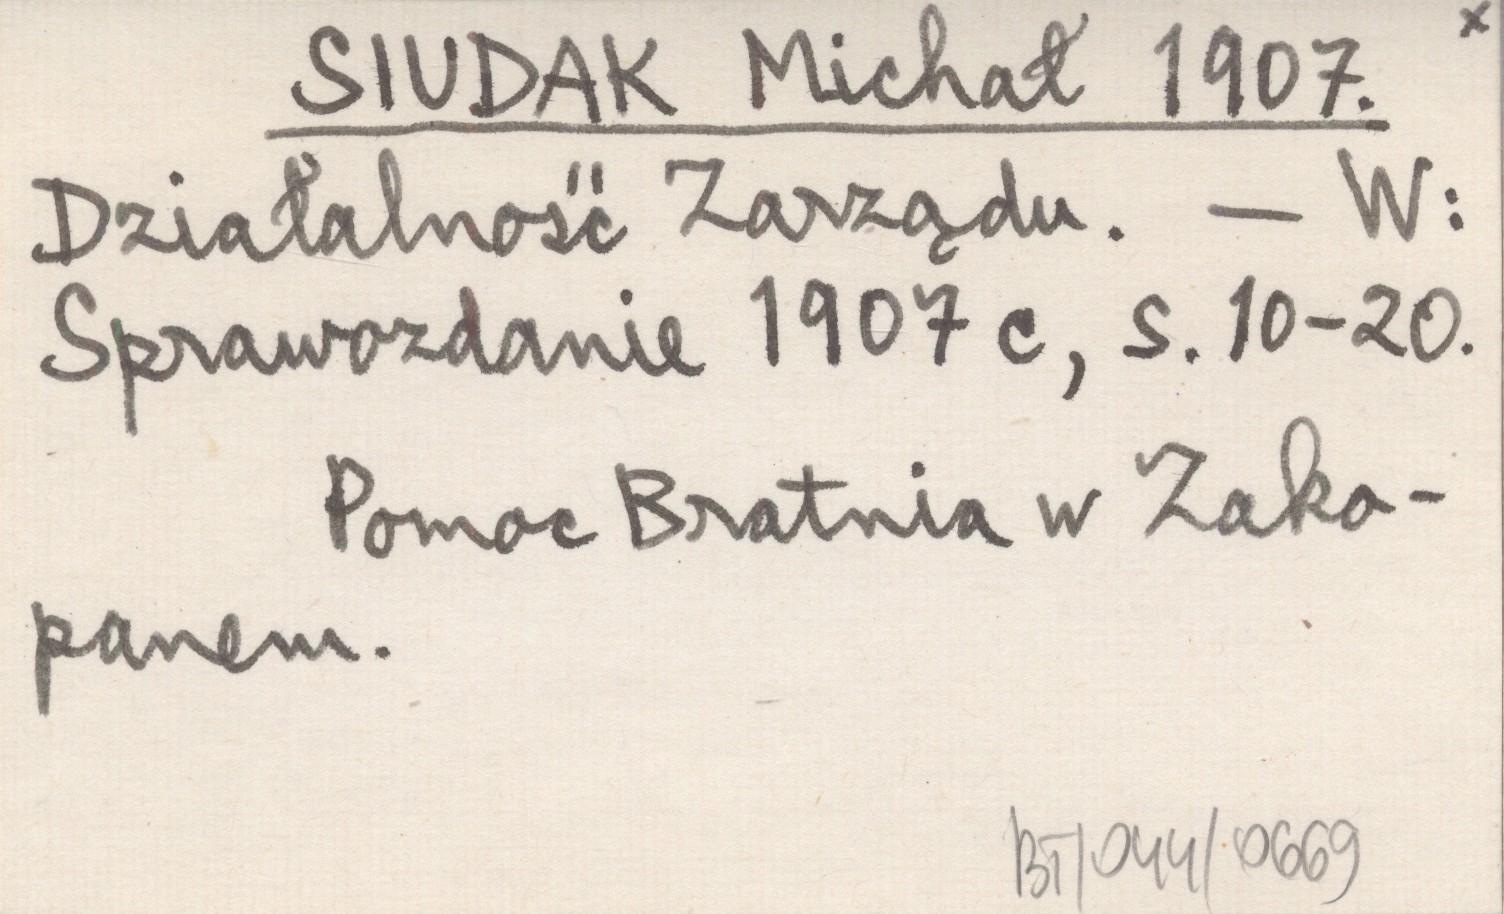 x
SIUDAK Michał 1907.
Działalność Zarządu. — W:
Sprawozdanie 1907 c, s. 10-20.
Pomoc Bratnia w Zako-
panem.
BT/044/0669